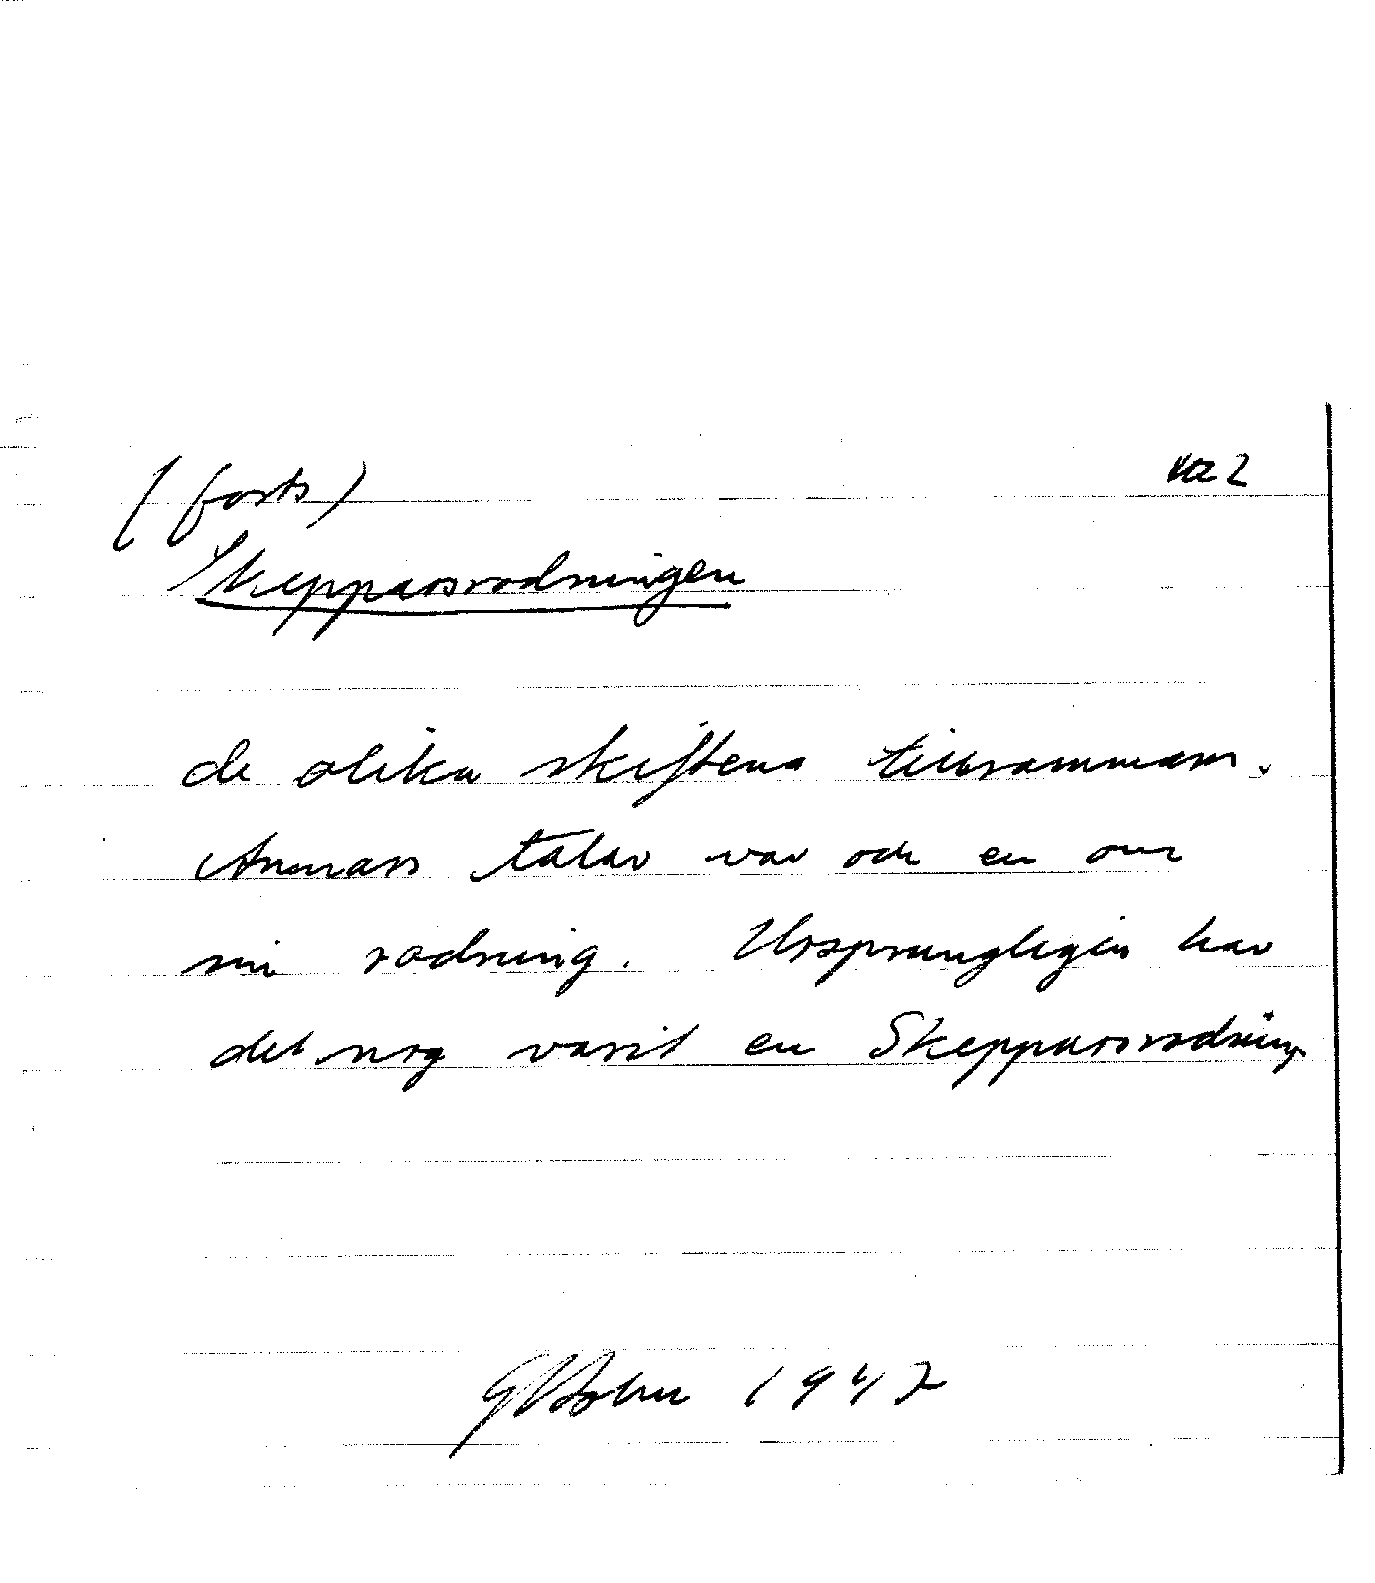 (forts)
Skepparsrodningen
de olika skiftena tillsammans.
Annars talar var och en om
sin rodning. Ursprungligen har
det nog varit en Skepparsrodning
1947